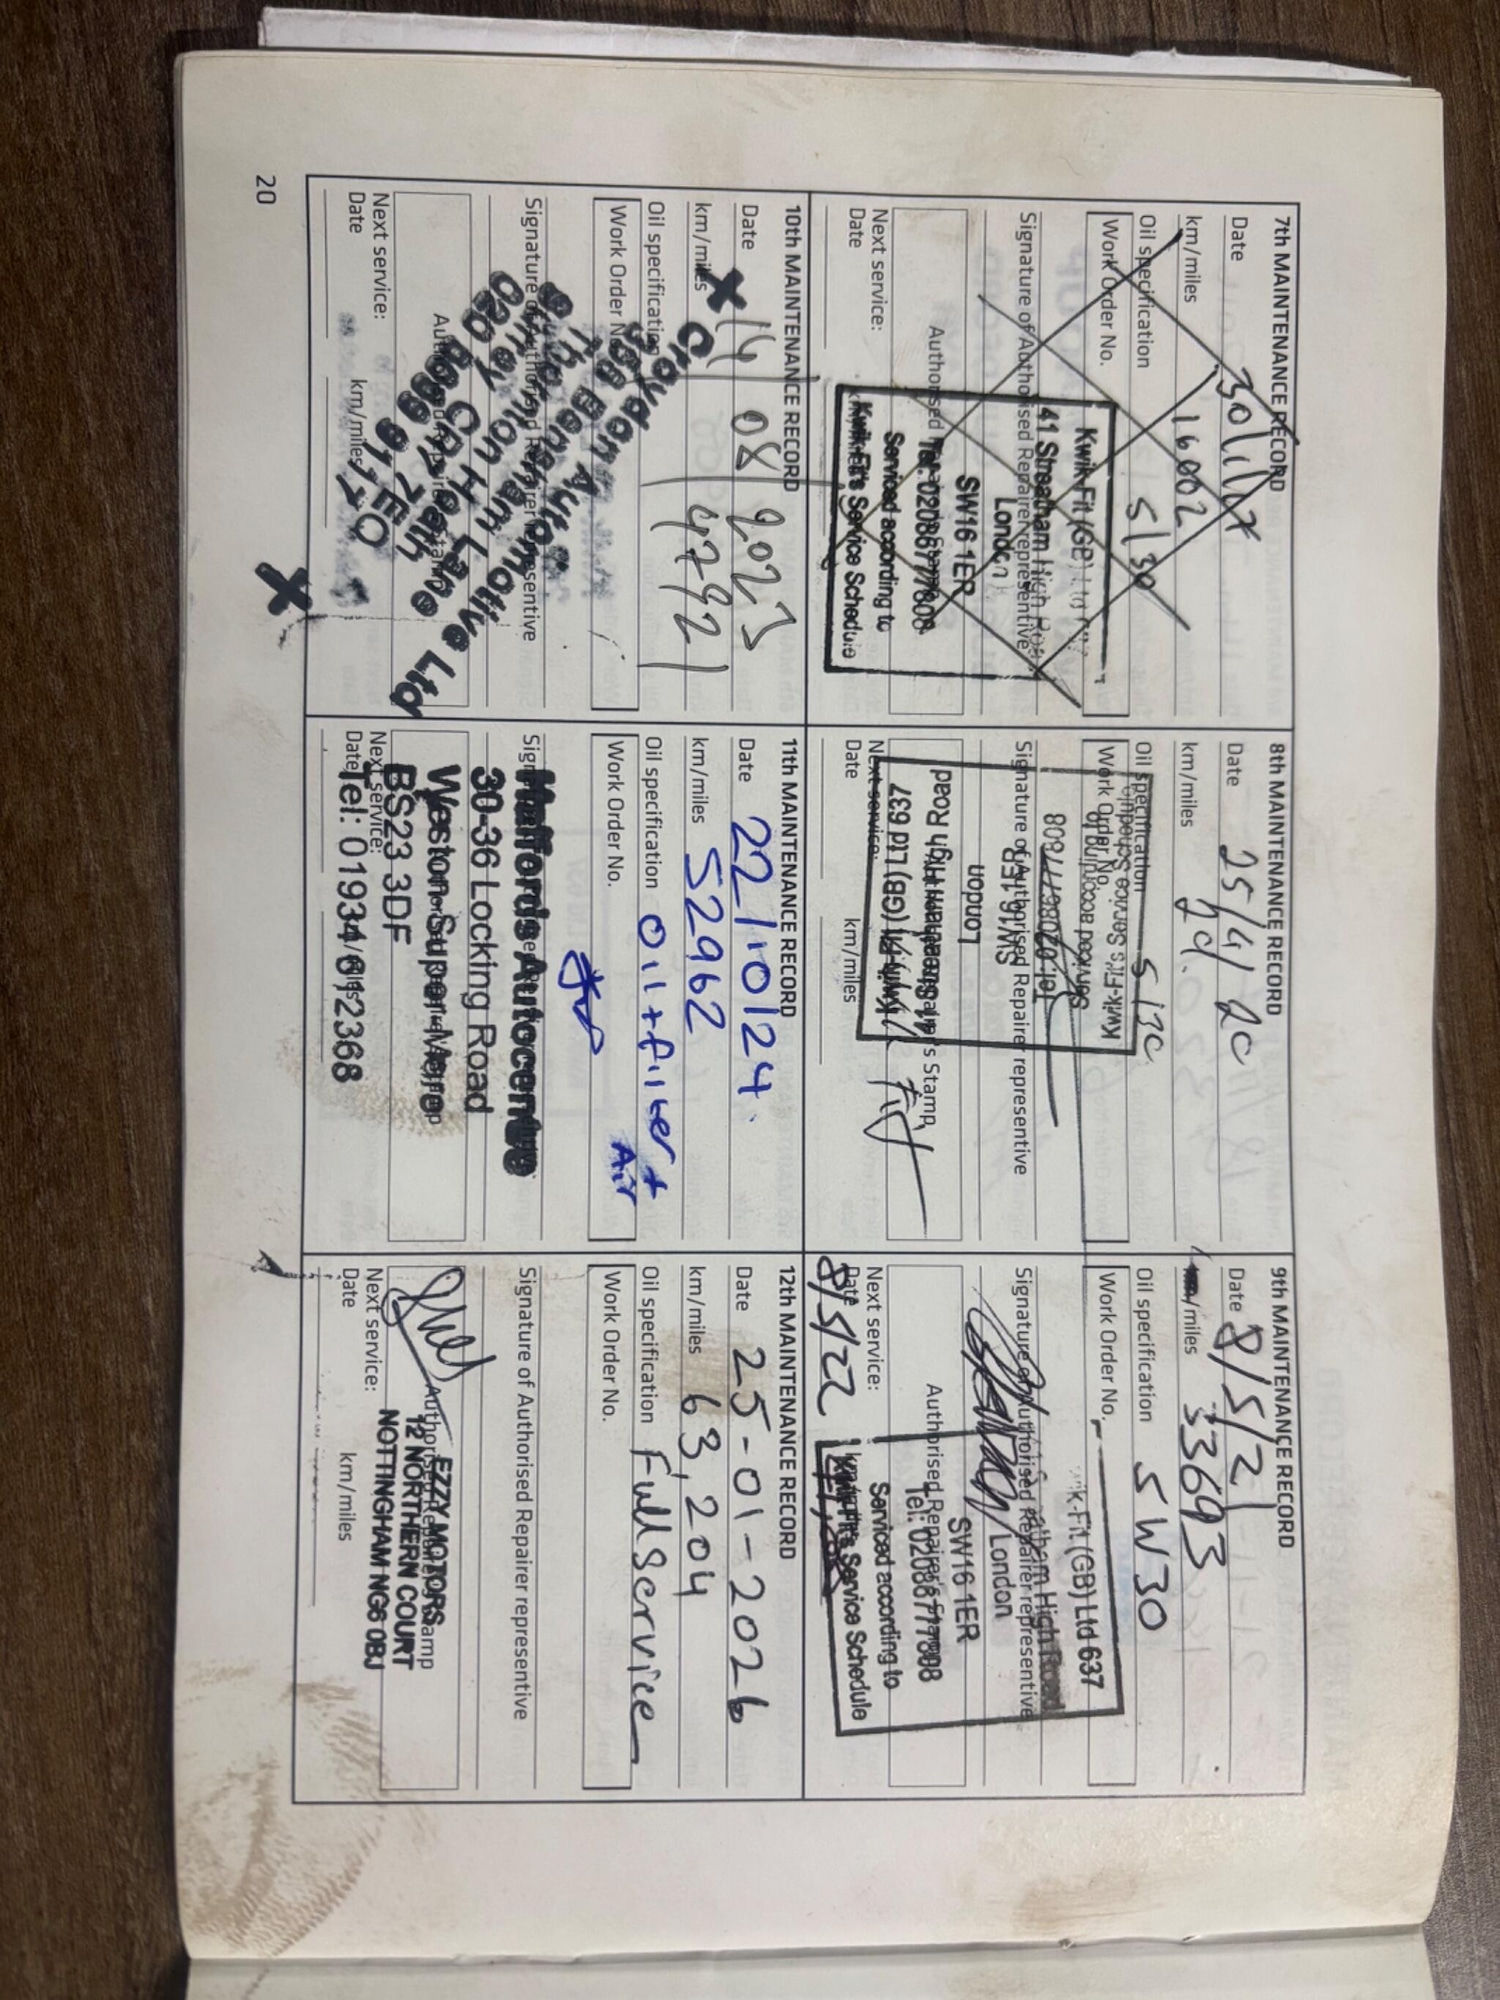 7th MAINTENANCE RECORD
Date
km/miles 16002
Oil specification 5/30
Work Order No.
Kwik-Fit (GB) Ltd
41 Streatham High Road
Signature of Authorised Repairer representive
London
SW16 1ER
Authorised
Tel: 02086777808
Serviced according to
Next service:
Kwik-Fit's Service Schedule
Date
8th MAINTENANCE RECORD
Date 25/4/20
km/miles
Oil specification 5/30
Kwik-Fit's Service Schedule
Work Order No.
Serviced according to
Tel: 02086777808
Signature of Authorised Repairer representive
SW16 1ER
London
41 Streatham High Road
Authorised Repairer's Stamp
Kwik-Fit (GB) Ltd 637
Next service:
Date km/miles
9th MAINTENANCE RECORD
Date 8/5/21
km/miles 33693
Oil specification 5W30
Work Order No.
Kwik-Fit (GB) Ltd 637
Streatham High Road
Signature of Authorised Repairer representive
London
SW16 1ER
Authorised Repairer's Stamp
Tel: 02086777808
Serviced according to
Next service:
Kwik-Fit's Service Schedule
Date km/miles
8/5/22
10th MAINTENANCE RECORD
Date 14/08/2023
km/miles 47921
Oil specification
Work Order No.
Croydon Automotive Ltd
Signature of Authorised Repairer representive
Authorised Repairer's Stamp
Next service:
Date km/miles
11th MAINTENANCE RECORD
Date 22/10/24.
km/miles 52962
Oil specification Oil + filter +
Air
Work Order No.
Signature of Authorised Repairer representive
Halfords Autocentre
30-36 Locking Road
Weston-Super-Mare
BS23 3DF
Next service:
Date km/miles
Tel: 01934 612368
12th MAINTENANCE RECORD
Date 25-01-2026
km/miles 63,204
Oil specification Full Service
Work Order No.
Signature of Authorised Repairer representive
EZZY MOTORS
Authorised Repairer's Stamp
12 NORTHERN COURT
NOTTINGHAM NG6 0BJ
Next service:
Date km/miles
20